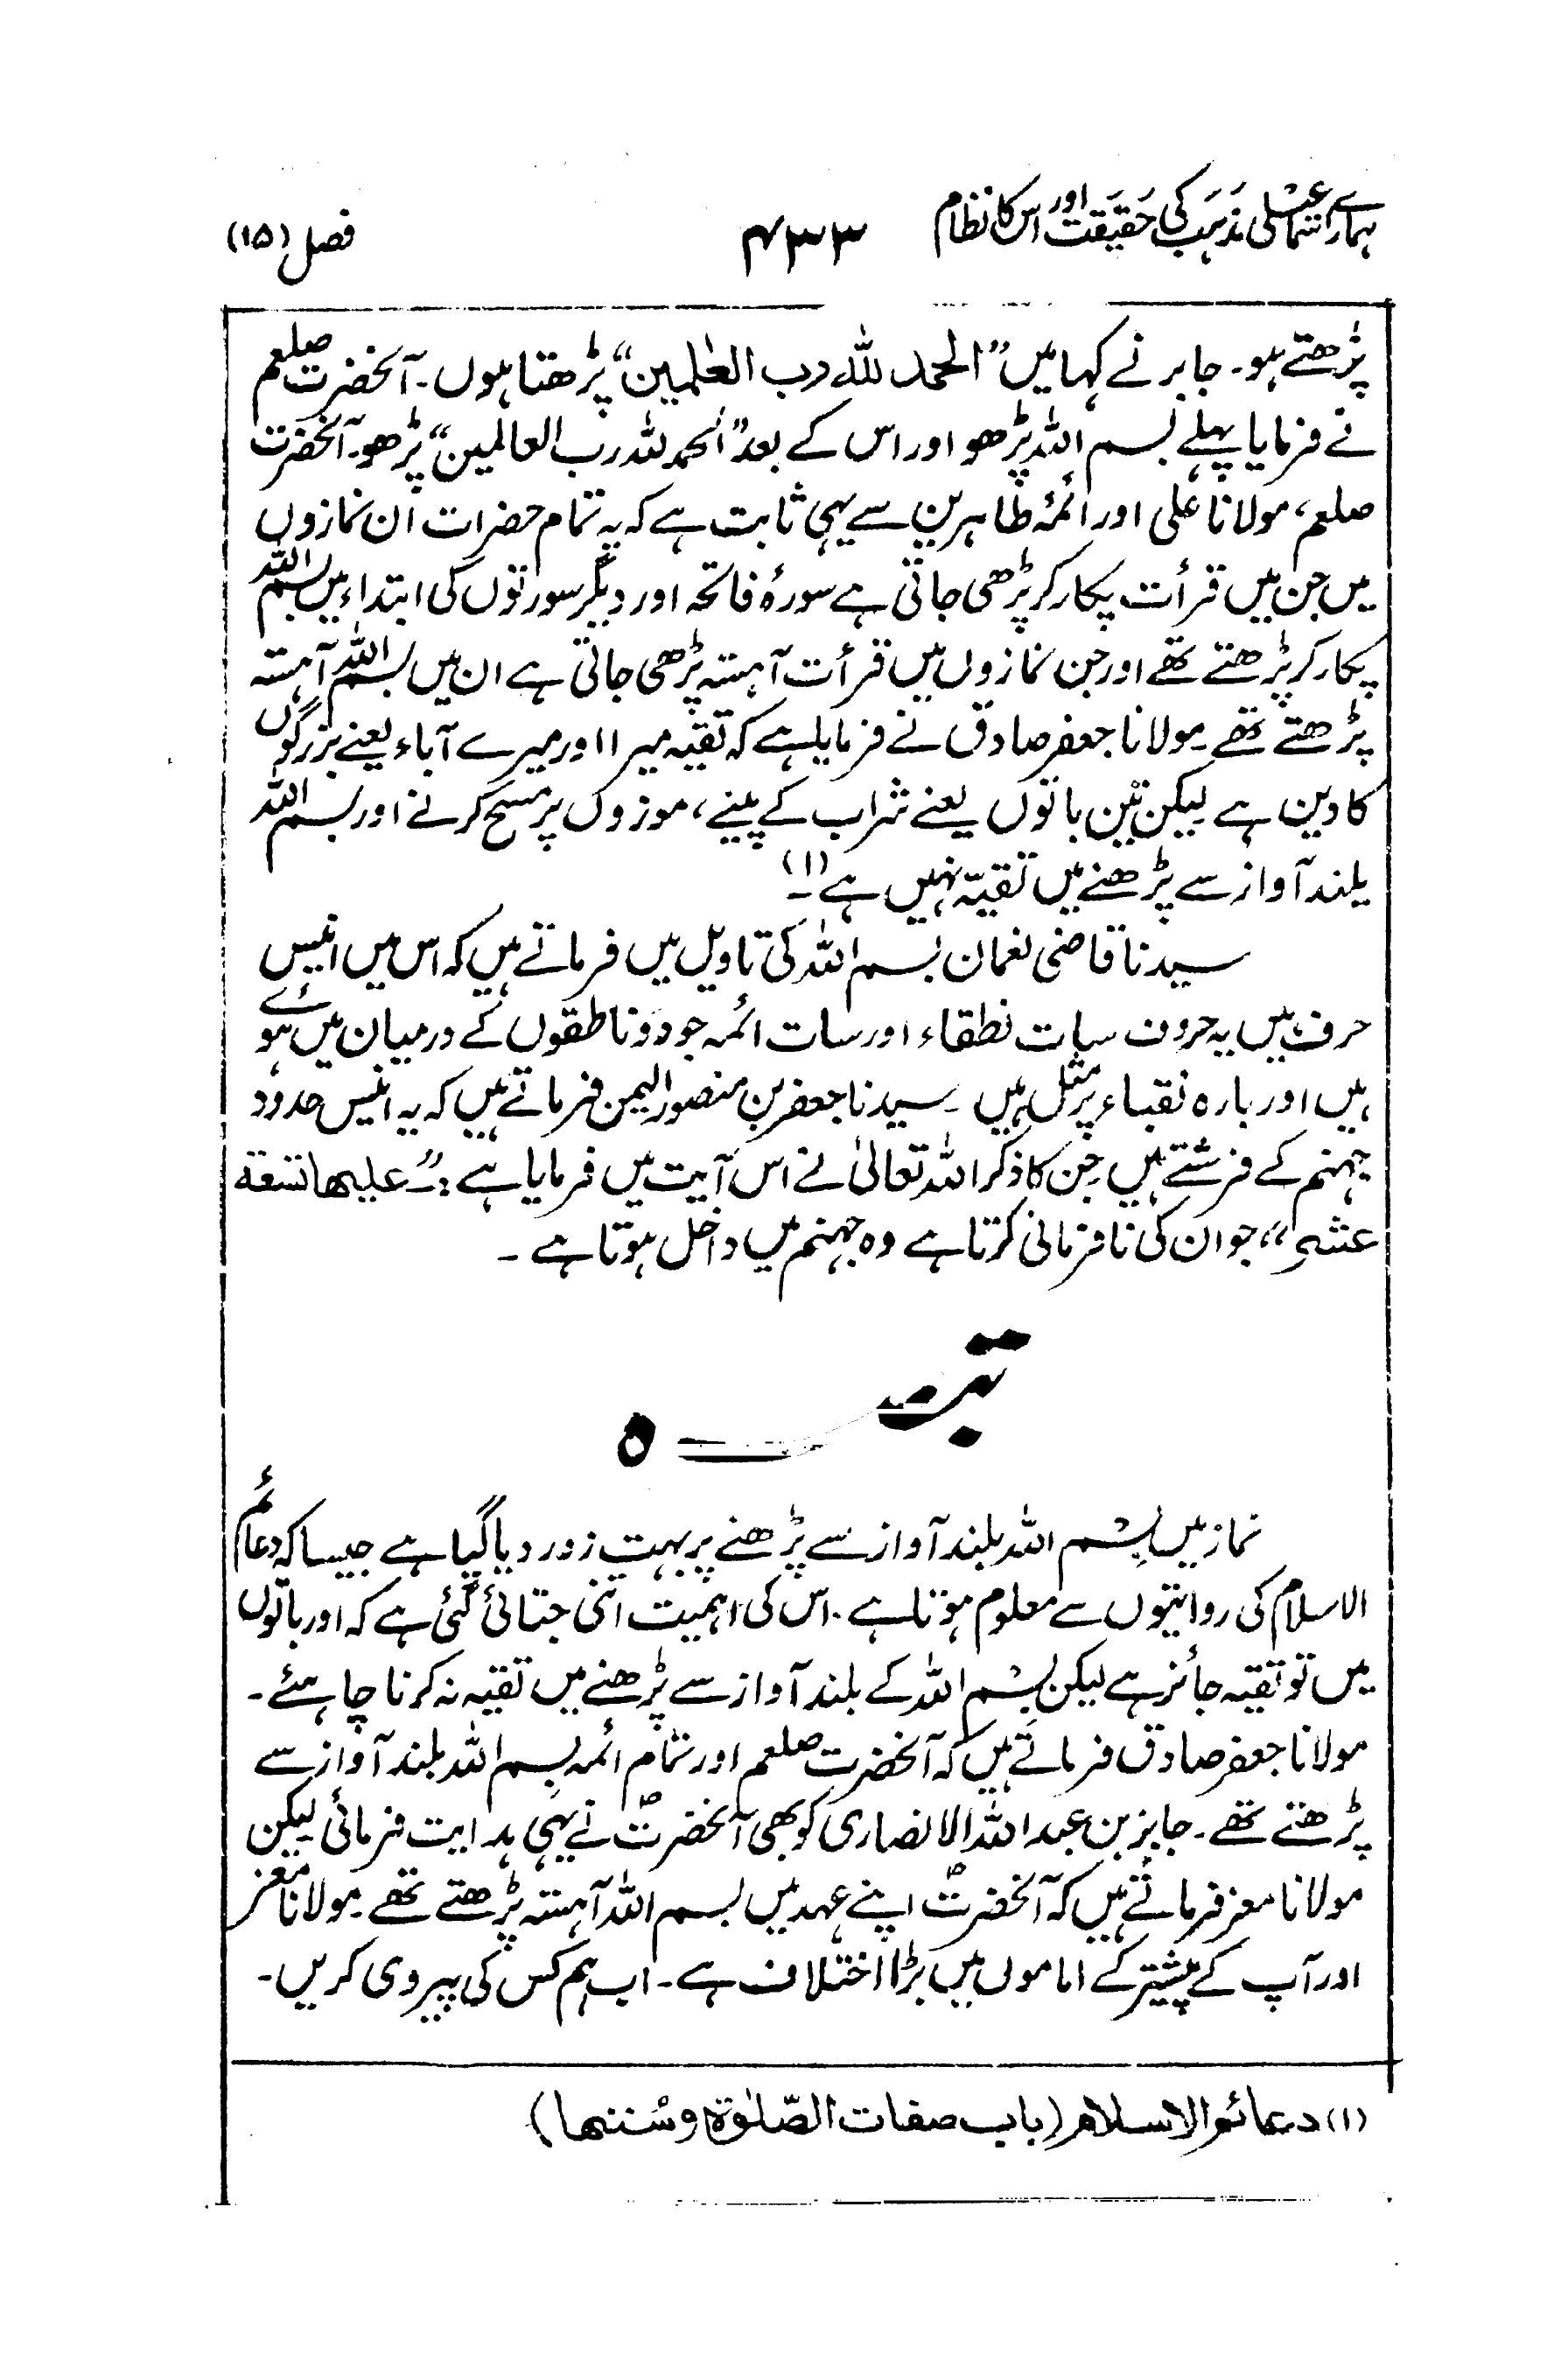 ہمارے اسماعیلی مذہب کی حقیقت اور اس کا نظام ۴۳۳ فصل (۱۵)
پڑھتے ہو۔ جابر نے کہا میں "الحمد للہ رب العٰلمین" پڑھتا ہوں۔ آنحضرت صلعم
نے فرمایا پہلے بسم اللہ پڑھو اور اس کے بعد "الحمد للہ رب العالمین" پڑھو۔ آنحضرت
صلعم، مولانا علی اور ائمۂ طاہرین سے یہی ثابت ہے کہ یہ تمام حضرات ان نمازوں
میں جن میں قرأت پکار کر پڑھی جاتی ہے سورۂ فاتحہ اور دیگر سورتوں کی ابتداء میں بسم اللہ
پکار کر پڑھتے تھے اور جن نمازوں میں قرأت آہستہ پڑھی جاتی ہے ان میں بسم اللہ آہستہ
پڑھتے تھے۔ مولانا جعفر صادق نے فرمایا ہے کہ تقیہ میرا اور میرے آباء یعنے بزرگوں
کا دین ہے لیکن تین باتوں یعنے شراب کے پینے، موزوں پر مسح کرنے اور بسم اللہ
بلند آواز سے پڑھنے میں تقیّہ نہیں ہے (۱)۔
سیدنا قاضی نعمان بسم اللہ کی تاویل میں فرماتے ہیں کہ اس میں انیس
حرف ہیں یہ حروف سات نطقاء اور سات ائمہ جو دو ناطقوں کے درمیان میں ہوئے
ہیں اور بارہ نقباء پر مثل ہیں۔ سیدنا جعفر بن منصور الیمن فرماتے ہیں کہ یہ انیس حدود
جہنم کے فرشتے ہیں جن کا ذکر اللہ تعالیٰ نے اس آیت میں فرمایا ہے :۔ "علیھا تسعۃ
عشر" جو ان کی نافرمانی کرتا ہے وہ جہنم میں داخل ہوتا ہے ۔
تبصرہ
نماز میں بسم اللہ بلند آواز سے پڑھنے پر بہت زور دیا گیا ہے جیسا کہ دعائم
الاسلام کی روایتوں سے معلوم ہوتا ہے۔ اس کی اہمیت اتنی جتائی گئی ہے کہ اور باتوں
میں تو تقیہ جائز ہے لیکن بسم اللہ کے بلند آواز سے پڑھنے میں تقیہ نہ کرنا چاہئے۔
مولانا جعفر صادق فرماتے ہیں کہ آنحضرت صلعم اور تمام ائمہ بسم اللہ بلند آواز سے
پڑھتے تھے۔ جابر بن عبد اللہ الانصاری کو بھی آنحضرتؐ نے یہی ہدایت فرمائی لیکن
مولانا معز فرماتے ہیں کہ آنحضرتؐ اپنے عہد میں بسم اللہ آہستہ پڑھتے تھے۔ مولانا معز
اور آپ کے پیشتر کے اماموں میں بڑا اختلاف ہے۔ اب ہم کس کی پیروی کریں۔
(۱) دعائم الاسلام (باب صفات الصّلٰوۃ وسُننھا)